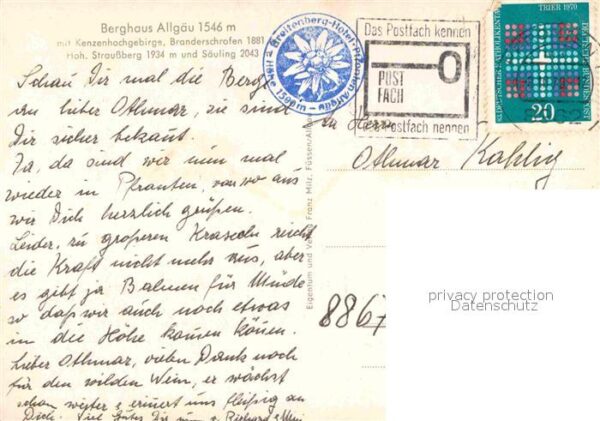 Berghaus Allgäu 1546 m
mit Kenzenhochgebirge, Branderschrofen 1881
Hoh. Straußberg 1934 m und Säuling 2043
Schau Dir mal die Berge
an lieber Othmar, sie sind
Dir sicher bekannt.
Ja, da sind wir nun mal
wieder in Pfronten, von wo aus
wir Dich herzlich grüßen.
Leider, zu großeren Kraxeln reicht
die Kraft nicht mehr aus, aber
es gibt ja Bahnen für Müde
so daß wir auch noch etwas
in die Höhe kommen können.
Lieber Othmar, vielen Dank noch
für den wilden Wein, er wächst
schon weiter u. erinnert uns fleißig an
Dich. Viel Gutes Dir von u. Richard u.
Breitenberg-Hotel
1500 m
Das Postfach kennen
POST
FACH
Postfach nennen
TRIER 1970
DEUTSCHER KATHOLIKENTAG
DEUTSCHE BUNDESPOST
20
Herrn
Othmar Kahlig
8867
Eigentum und Verlag Franz Milz, Füssen/Allgäu
privacy protection
Datenschutz